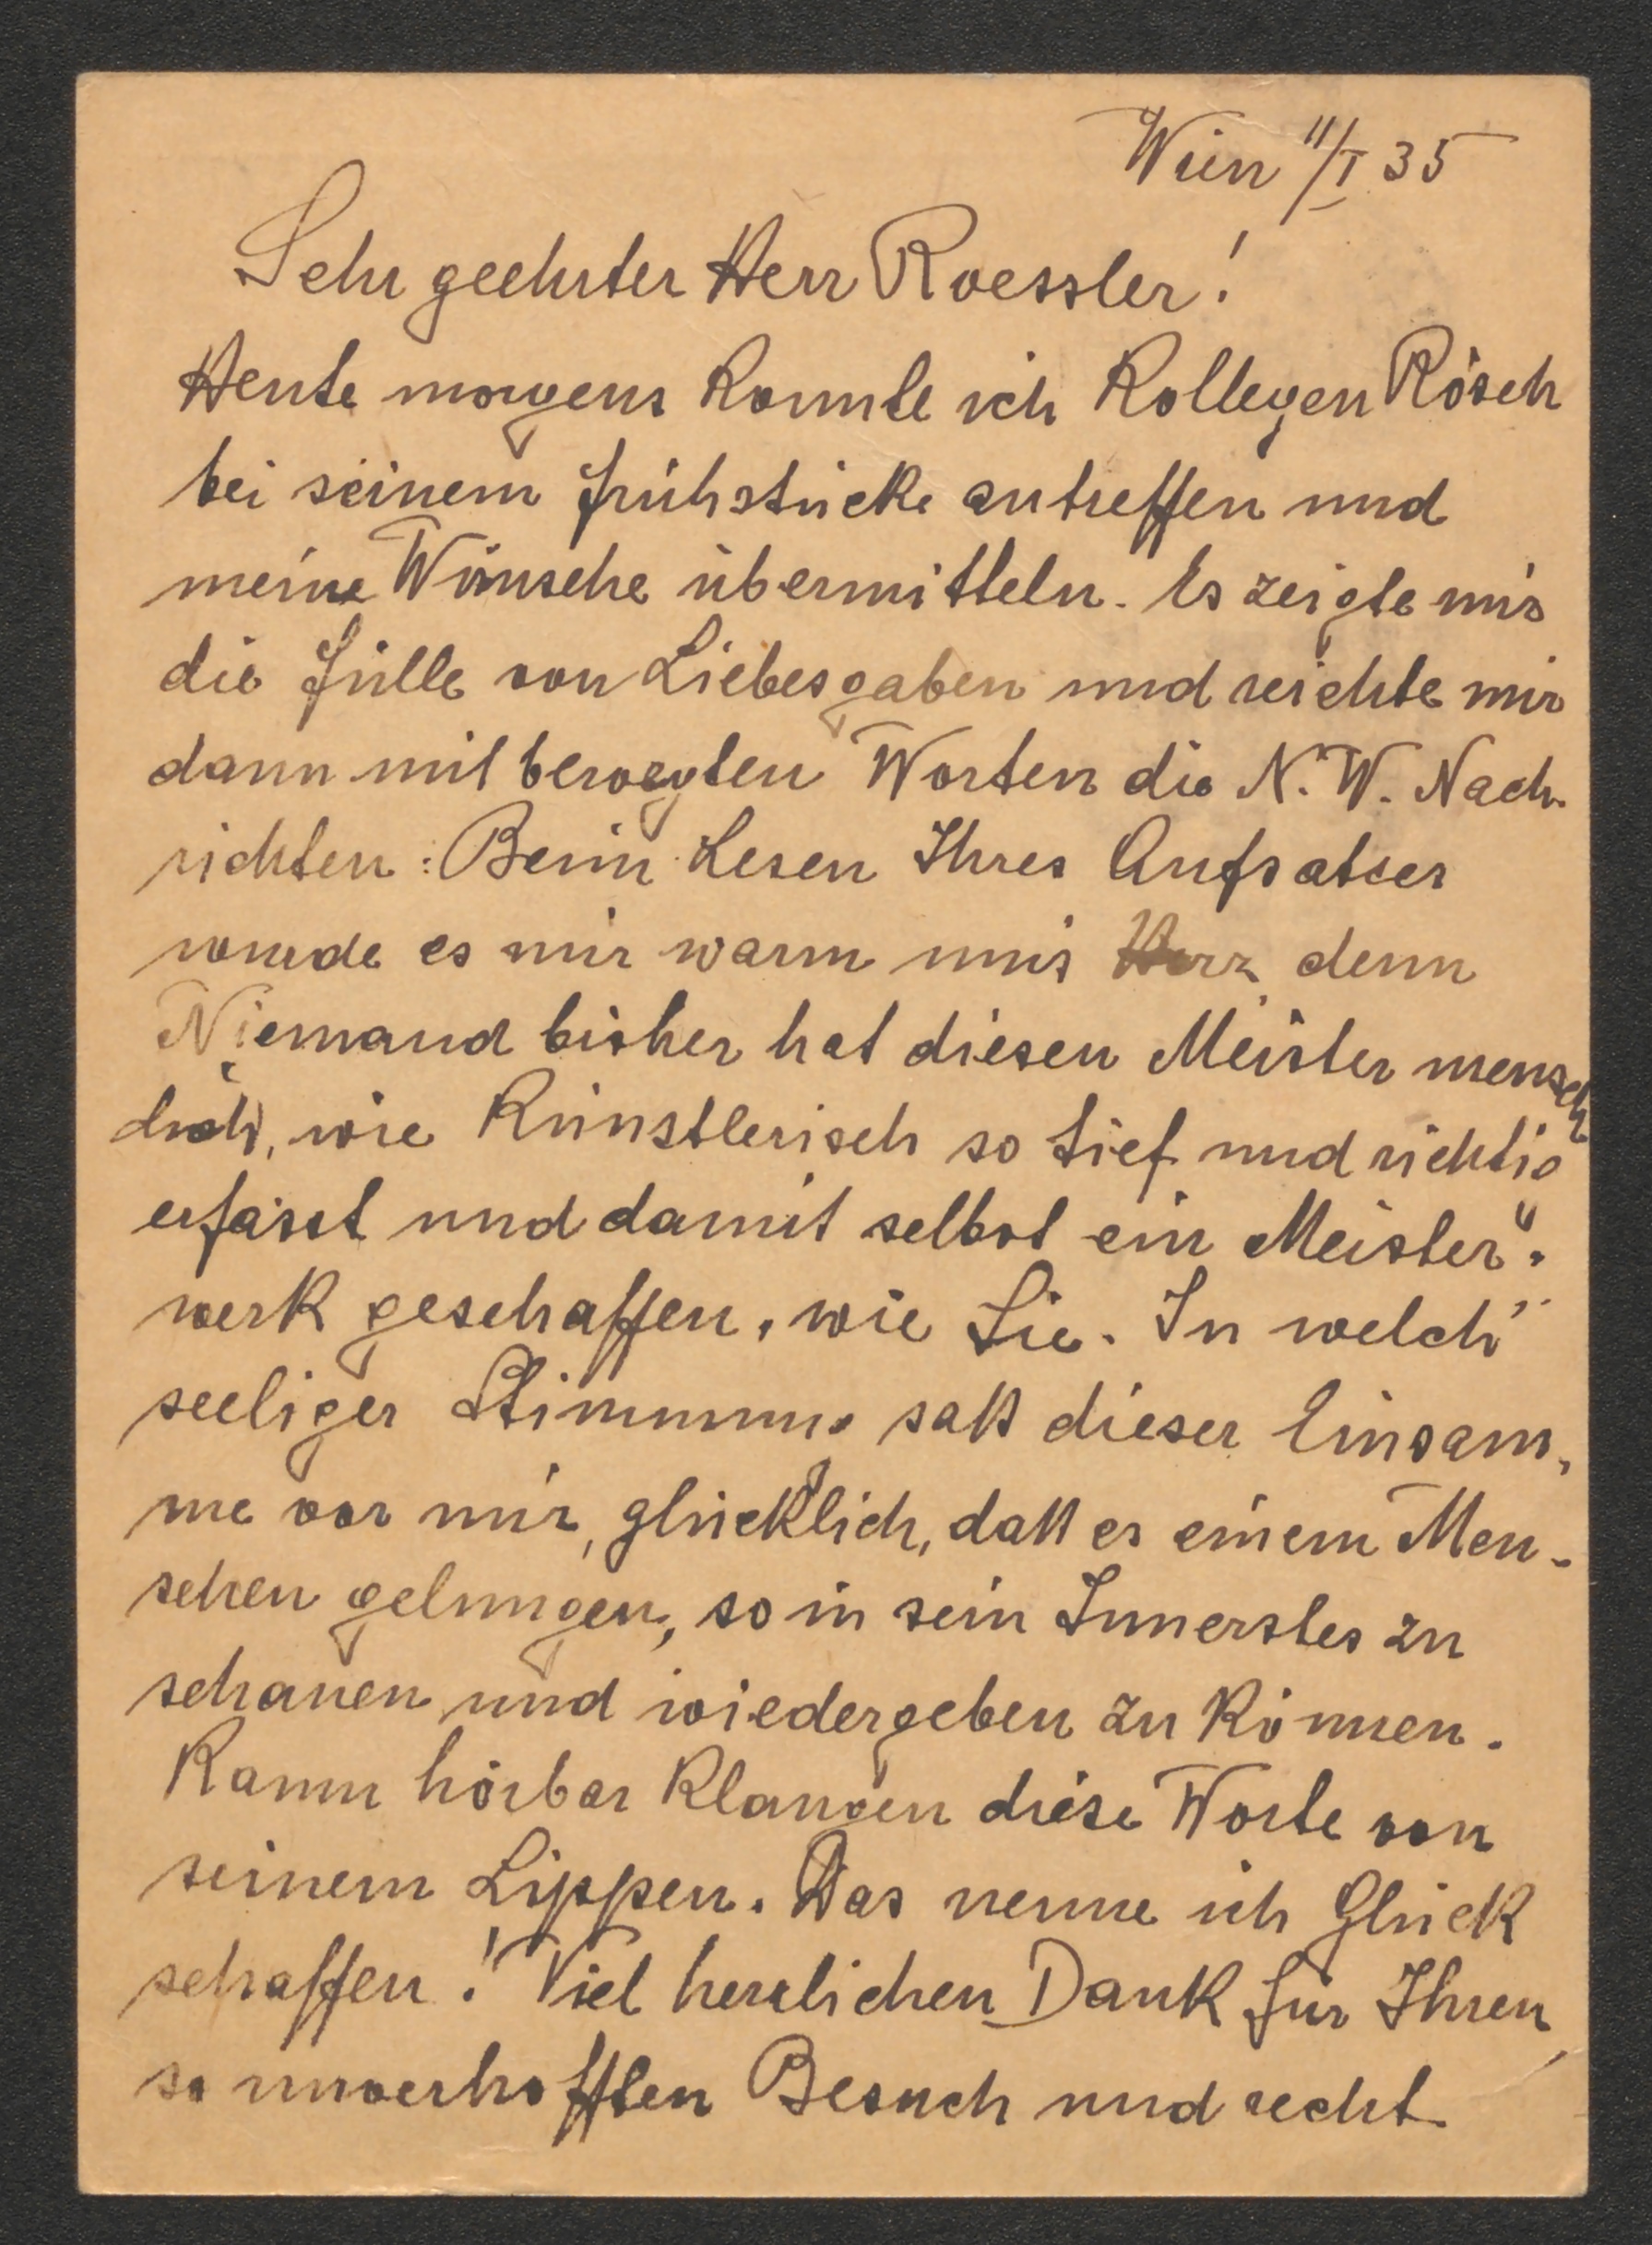 Wien 11/I 35
Sehr geehrter Herr Roessler!
Heute morgens konnte ich Kollegen Rösch
bei seinem Frühstücke antreffen und
meine Wünsche übermitteln. Es zeigte mir
die Fülle von Liebesgaben und reichte mir
dann mit bewegten Worten die N. W. Nach-
richten: Beim Lesen Ihres Aufsatzes
wurde es mir warm ums Herz denn
Niemand bisher hat diesen Meister mensch
lich, wie künstlerisch so tief und richtig
erfasst und damit selbst ein Meister"-
werk geschaffen, wie Sie. In welch'
seeliger Stimmung saß dieser Einsam-
me vor mir, glücklich, daß es einem Men-
schen gelungen, so in sein Innerstes zu
schauen und wiedergeben zu können.
Kaum hörbar klangen diese Worte von
seinem Lippen. Das nenne ich Glück
schaffen! Viel herzlichen Dank für Ihren
so unverhofften Besuch und recht